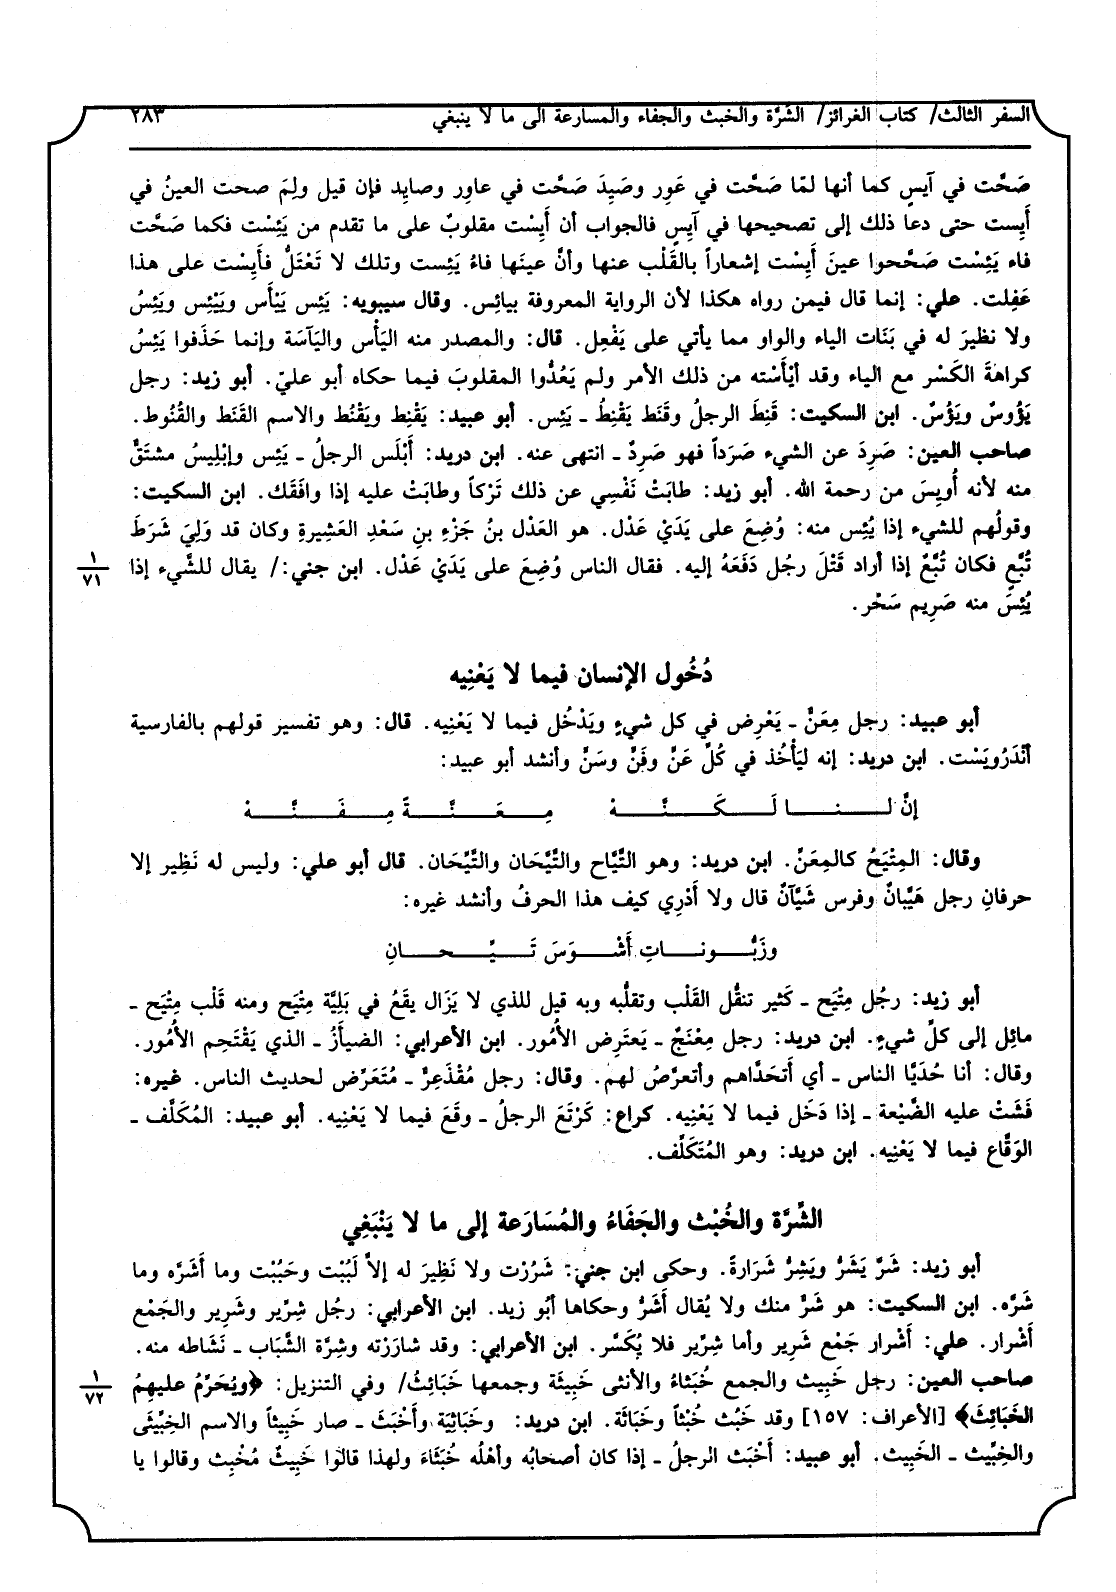 السفر الثالث/ كتاب الغرائز/ الشَرَّة والخبث والجفاء والمسارعة الى ما لا ينبغي ٢٨٣
صَحَّت في آيسٍ كما أنها لمّا صَحَّت في عَوِر وصَيِدَ صَحَّت في عاوِر وصايِد فإن قيل ولِمَ صحت العينُ في
أَيِست حتى دعا ذلك إلى تصحيحها في آيِسٍ فالجواب أن أَيِسْت مقلوبٌ على ما تقدم من يَئِسْت فكما صَحَّت
فاء يَئِسْت صَحَّحوا عينَ أَيِسْت إشعاراً بالقَلْب عنها وأنَّ عينَها فاءُ يَئِست وتلك لا تَعْتَلُّ فأَيِسْت على هذا
عَفِلت. علي: إنما قال فيمن رواه هكذا لأن الرواية المعروفة بيائِس. وقال سيبويه: يَئِس يَيْأَس ويَيْئِس ويَئِسُ
ولا نظيرَ له في بَنَات الياء والواو مما يأتي على يَفْعِل. قال: والمصدر منه اليَأْس واليَآسَة وإنما حَذَفوا يَئِسُ
كراهةَ الكَسْر مع الياء وقد أيْأَسْته من ذلك الأمر ولم يَعُدُّوا المقلوبَ فيما حكاه أبو عليّ. أبو زيد: رجل
يَؤُوسٌ ويَؤُسٌ. ابن السكيت: قَنِطَ الرجلُ وقَنَط يَقْنِطُ ـ يَئِس. أبو عبيد: يَقْنِط ويَقْنُط والاسم القَنَط والقُنُوط.
صاحب العين: صَرِدَ عن الشيء صَرَداً فهو صَرِدٌ ـ انتهى عنه. ابن دريد: أَبْلَس الرجلُ ـ يَئِس وإبْلِيسُ مشتَقٌّ
منه لأنه أُويِسَ من رحمة الله. أبو زيد: طابَتْ نَفْسِي عن ذلك تَرْكاً وطابَتْ عليه إذا وافَقَك. ابن السكيت:
وقولُهم للشيء إذا يُئِس منه: وُضِعَ على يَدَيْ عَدْل. هو العَدْل بنُ جَزْءِ بنِ سَعْدِ العَشِيرةِ وكان قد وَلِيَ شَرَطَ
تُبَّعٍ فكان تُبَّعٌ إذا أراد قَتْلَ رجُل دَفَعَهُ إليه. فقال الناس وُضِعَ على يَدَيْ عَدْل. ابن جني:/ يقال للشَّيء إذا ١/٧١
يُئِسَ منه صَرِيم سَحْر.
دُخُول الإنسان فيما لا يَعْنِيه
أبو عبيد: رجل مِعَنٌّ ـ يَعْرِض في كل شيءٍ ويَدْخُل فيما لا يَعْنِيه. قال: وهو تفسير قولهم بالفارسية
أنْدَرُويَسْت. ابن دريد: إنه ليَأْخُذ في كُلِّ عَنٍّ وفَنٍّ وسَنٍّ وأنشد أبو عبيد:
إنَّ لنا لَكَنَّهْ مِعَنَّةً مِفَنَّهْ
وقال: المِتْيَحُ كالمِعَنِّ. ابن دريد: وهو التَّيَّاح والتَّيَّحَان والتَّيِّحَان. قال أبو علي: وليس له نَظِير إلا
حرفانِ رجل هَيَّبانٌ وفرس شَيَّآنٌ قال ولا أَدْرِي كيف هذا الحرفُ وأنشد غيره:
وزَبُّوناتِ أَشْوَسَ تَيِّحانِ
أبو زيد: رجُل مِتْيَح ـ كَثير تنقُّل القَلْب وتقلُّبه وبه قيل للذي لا يَزَال يقَعُ في بَلِيَّة مِتْيَح ومنه قَلْب مِتْيَح ـ
مائِل إلى كلِّ شيءٍ. ابن دريد: رجل مِعْنَجٌ ـ يَعتَرِض الأُمُور. ابن الأعرابي: الضيأَزُ ـ الذي يَقْتَحِم الأُمُور.
وقال: أنا حُدَيَّا الناس ـ أي أَتحَدَّاهم وأتعرَّصُ لهم. وقال: رجل مُقْذَعِرٌّ ـ مُتَعَرِّض لحديث الناس. غيره:
فَشَتْ عليه الضَّيْعة ـ إذا دَخَل فيما لا يَعْنِيه. كراع: كَرْتَعَ الرجلُ ـ وقَعَ فيما لا يَعْنِيه. أبو عبيد: المُكَلَّف ـ
الوَقَّاع فيما لا يَعْنِيه. ابن دريد: وهو المُتَكَلِّف.
الشِّرَّة والخُبْث والجَفَاءُ والمُسَارَعة إلى ما لا يَنْبَغِي
أبو زيد: شَرَّ يَشَرُّ ويَشِرُّ شَرَارةً. وحكى ابن جني: شَرُرْت ولا نَظِيرَ له إلاَّ لَبُبْت وحَبُبْت وما أَشَرَّه وما
شَرَّه. ابن السكيت: هو شَرٌّ منك ولا يُقال أَشَرُّ وحكاها أبُو زيد. ابن الأعرابي: رجُل شِرِّير وشَرِير والجَمْع
أَشْرار. علي: أَشْرار جَمْع شَرِير وأما شِرِّير فلا يُكَسَّر. ابن الأعرابي: وقد شارَرْته وشِرَّة الشَّبَاب ـ نَشَاطه منه.
صاحب العين: رجل خَبِيث والجمع خُبَثاءُ والأنثى خَبِيثَة وجمعها خَبَائِثُ/ وفي التنزيل: ﴿ويُحَرِّمُ عليهِمُ ١/٧٢
الخَبَائِثَ﴾ [الأعراف: ١٥٧] وقد خَبُث خُبْثاً وخَبَاثَة. ابن دريد: وخَبَاثِيَة وأَخْبَثَ ـ صار خَبِيثاً والاسم الخِبِّيثَى
والخِبِّيث ـ الخَبِيث. أبو عبيد: أَخْبَث الرجلُ ـ إذا كان أصحابُه وأهْلُه خُبَثَاءَ ولهذا قالوا خَبِيثٌ مُخْبِث وقالوا يا